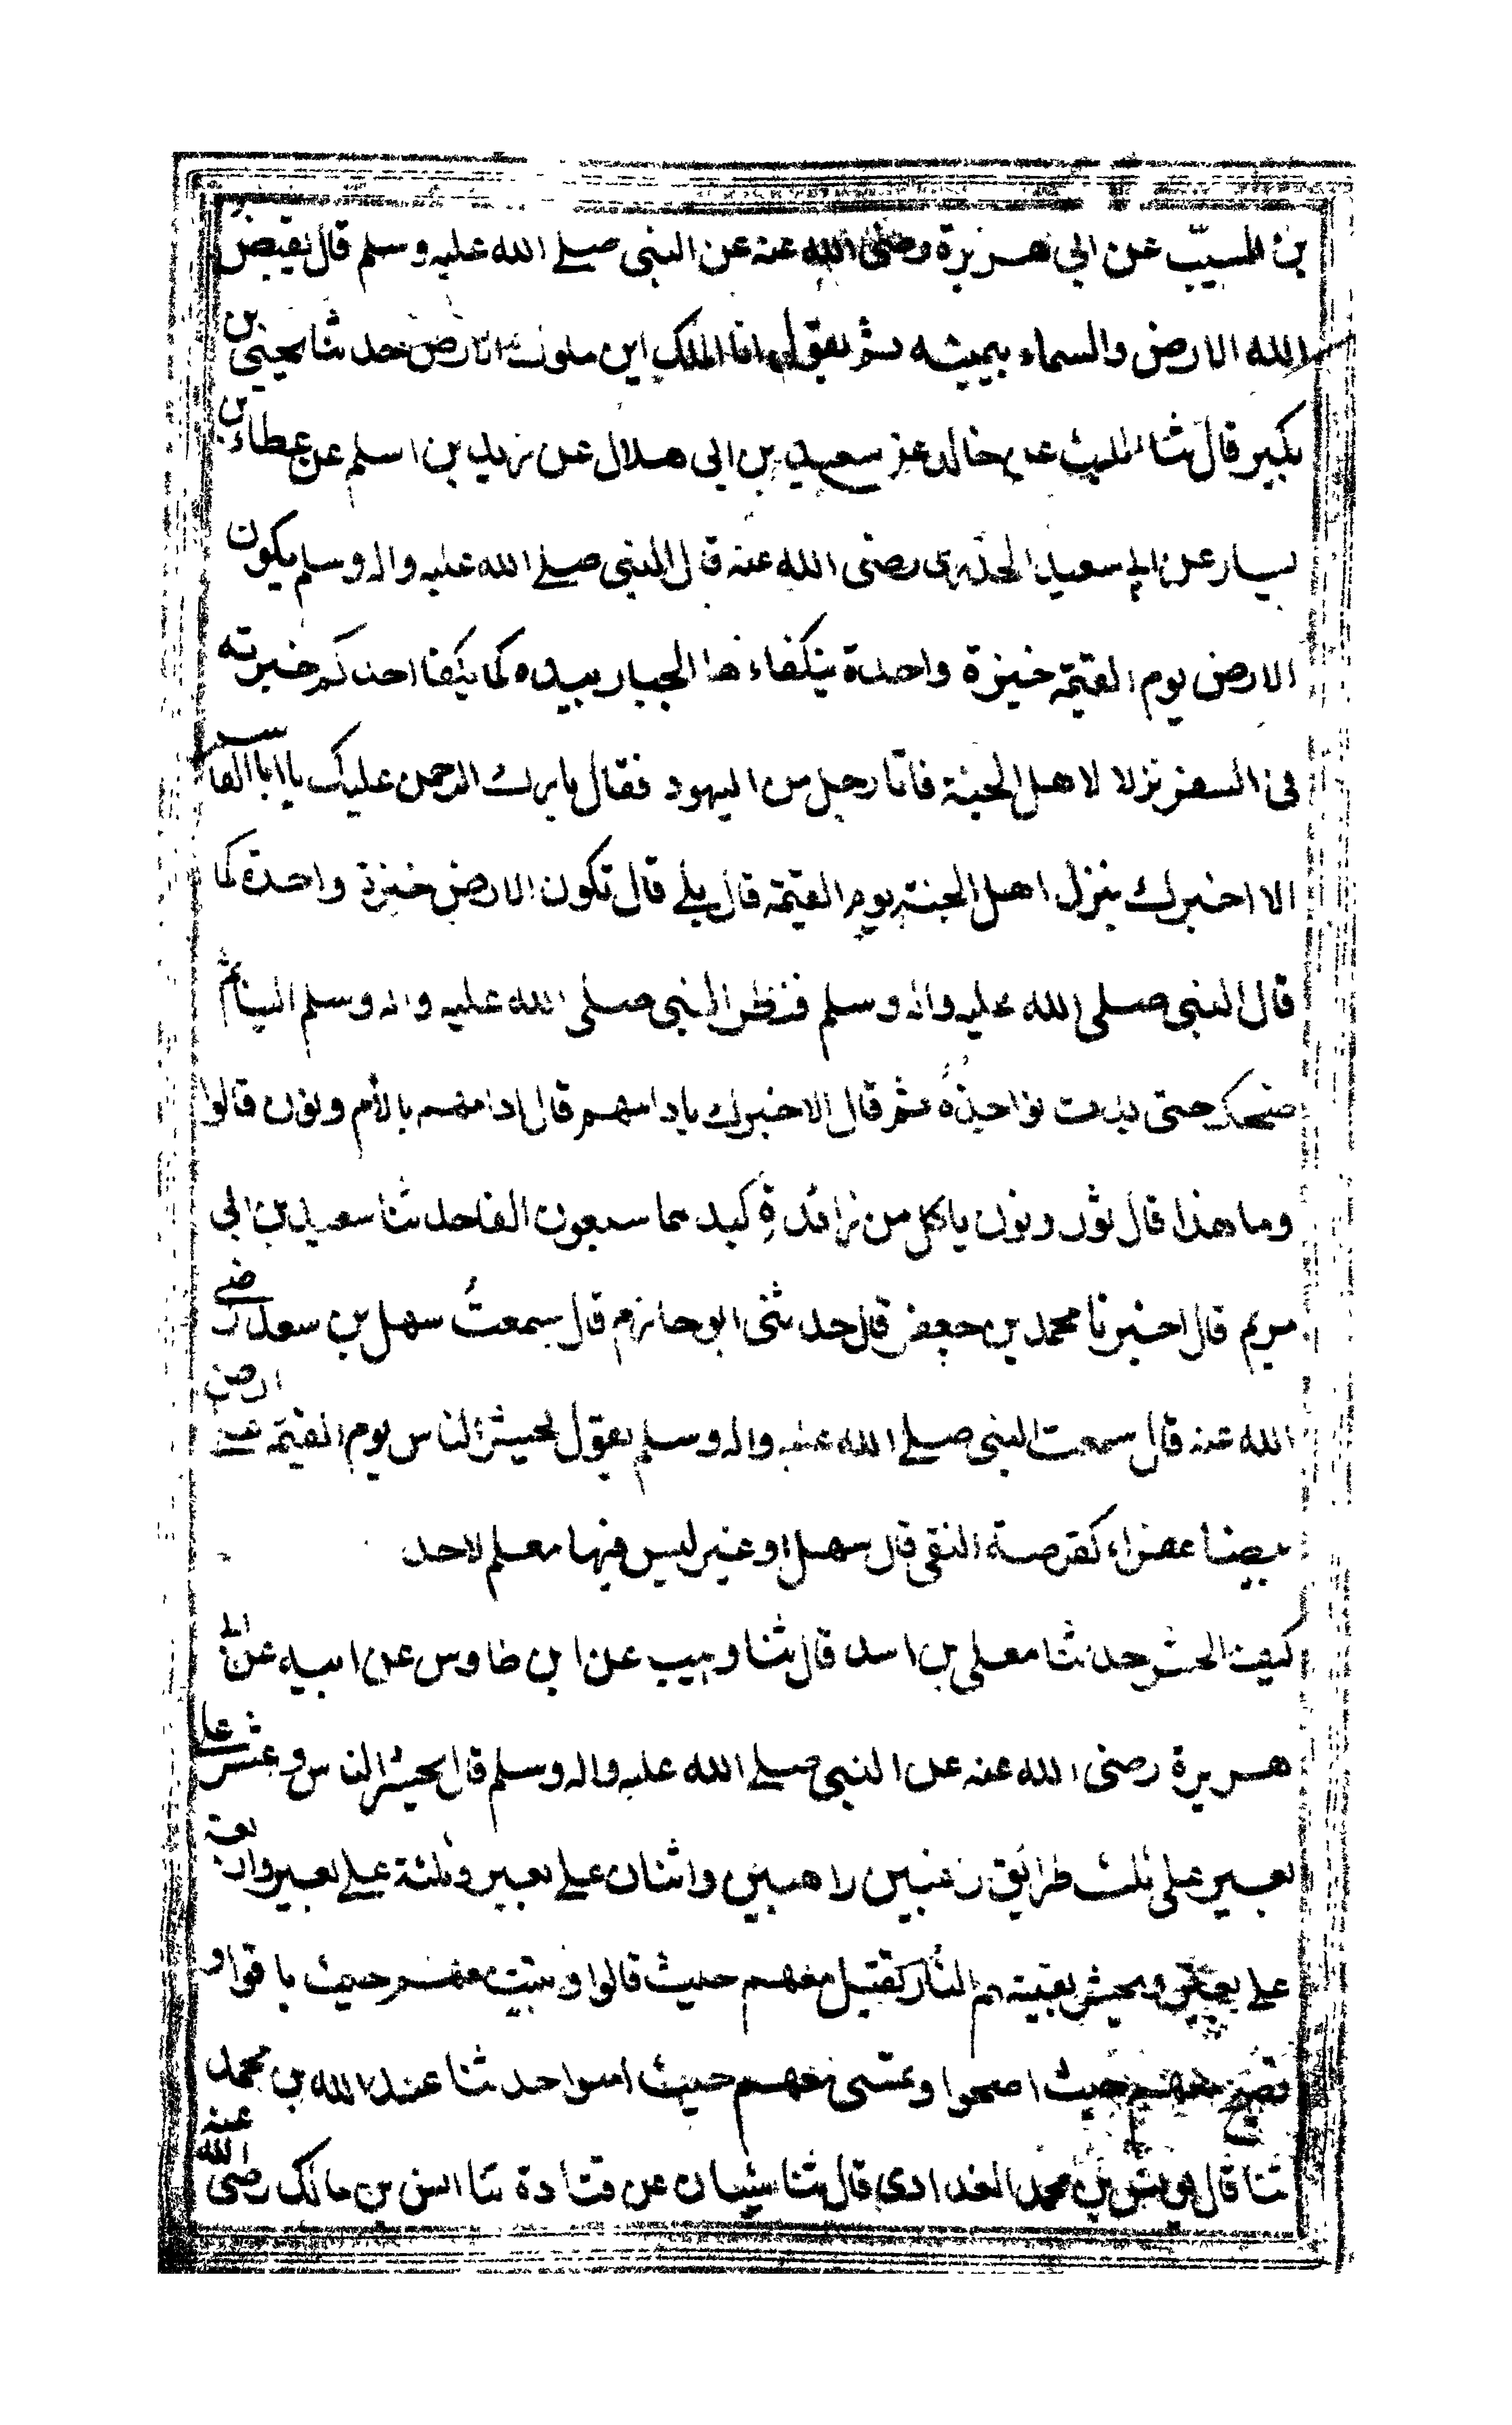 بن المسيّب عن ابي هريرة رضى الله عنه عن النبى صلے الله عليه وسلم قال يقبض
الله الارض والسماء بيمينه ثم يقول انا الملك اين ملوك الارض حدثنا يحيى بن
بكير قال ثنا الليث عن خالد عن سعيد بن ابى هلال عن زيد بن اسلم عن عطاء بن
يسار عن ابي سعيد الخدرى رضى الله عنه قال النبى صلے الله عليه واله وسلم يكون
الارض يوم القيمة خبزة واحدة يتكفاء ها الجبار بيده كما يتكفا احدكم خبزته
فى السفر نزلا لاهل الجنة فاتا رجل من اليهود فقال بارك الرحمن عليك يا ابا القاسم
الا اخبرك بنزل اهل الجنة يوم القيمة قال بلے قال تكون الارض خبزة واحدة كما
قال النبى صلى الله عليه واله وسلم فنظر النبى صلى الله عليه واله وسلم الينا ثم
ضحك حتى بدت نواجذه ثم قال الا اخبرك بادامهم قال ادامهم بالأم ونون قالوا
وما هذا قال ثور ونون ياكل من زائدة كبد هما سبعون الفا حدثنا سعيد بن ابي
مريم قال اخبرنا محمد بن جعفر قال حدثنى ابو حازم قال سمعتُ سهل بن سعد رضے
الله عنه قال سمعت النبى صلے الله عليه واله وسلم يقول يحشر الناس يوم القيمة علے ارض
بيضا عفراء كقرصة النقى قال سهل او غير ليس فيها معلم لاحد
كيف الحشر حدثنا معلى بن اسد قال ثنا وهيب عن ابن طاوس عن ابيه عن ابي
هريرة رضى الله عنه عن النبى صلے الله عليه واله وسلم قال يحشر الناس وعشر علے
بعير على ثلث طرائق زغبين راهبين واثنان علے بعير وثلثة علے بعير واربعة
علے بعير ويحشر بقيتهم النار كقتيل معهم حيث قالوا وتبيت معهم حيث باتوا و
تصبح معهم حيث اصبحوا وتمسى معهم حيث امسوا حدثنا عبد الله بن محمد
ثنا قال يونس بن محمد البغدادى قال ثنا شيبان عن قتادة ثنا انس بن مالك رضى الله عنه